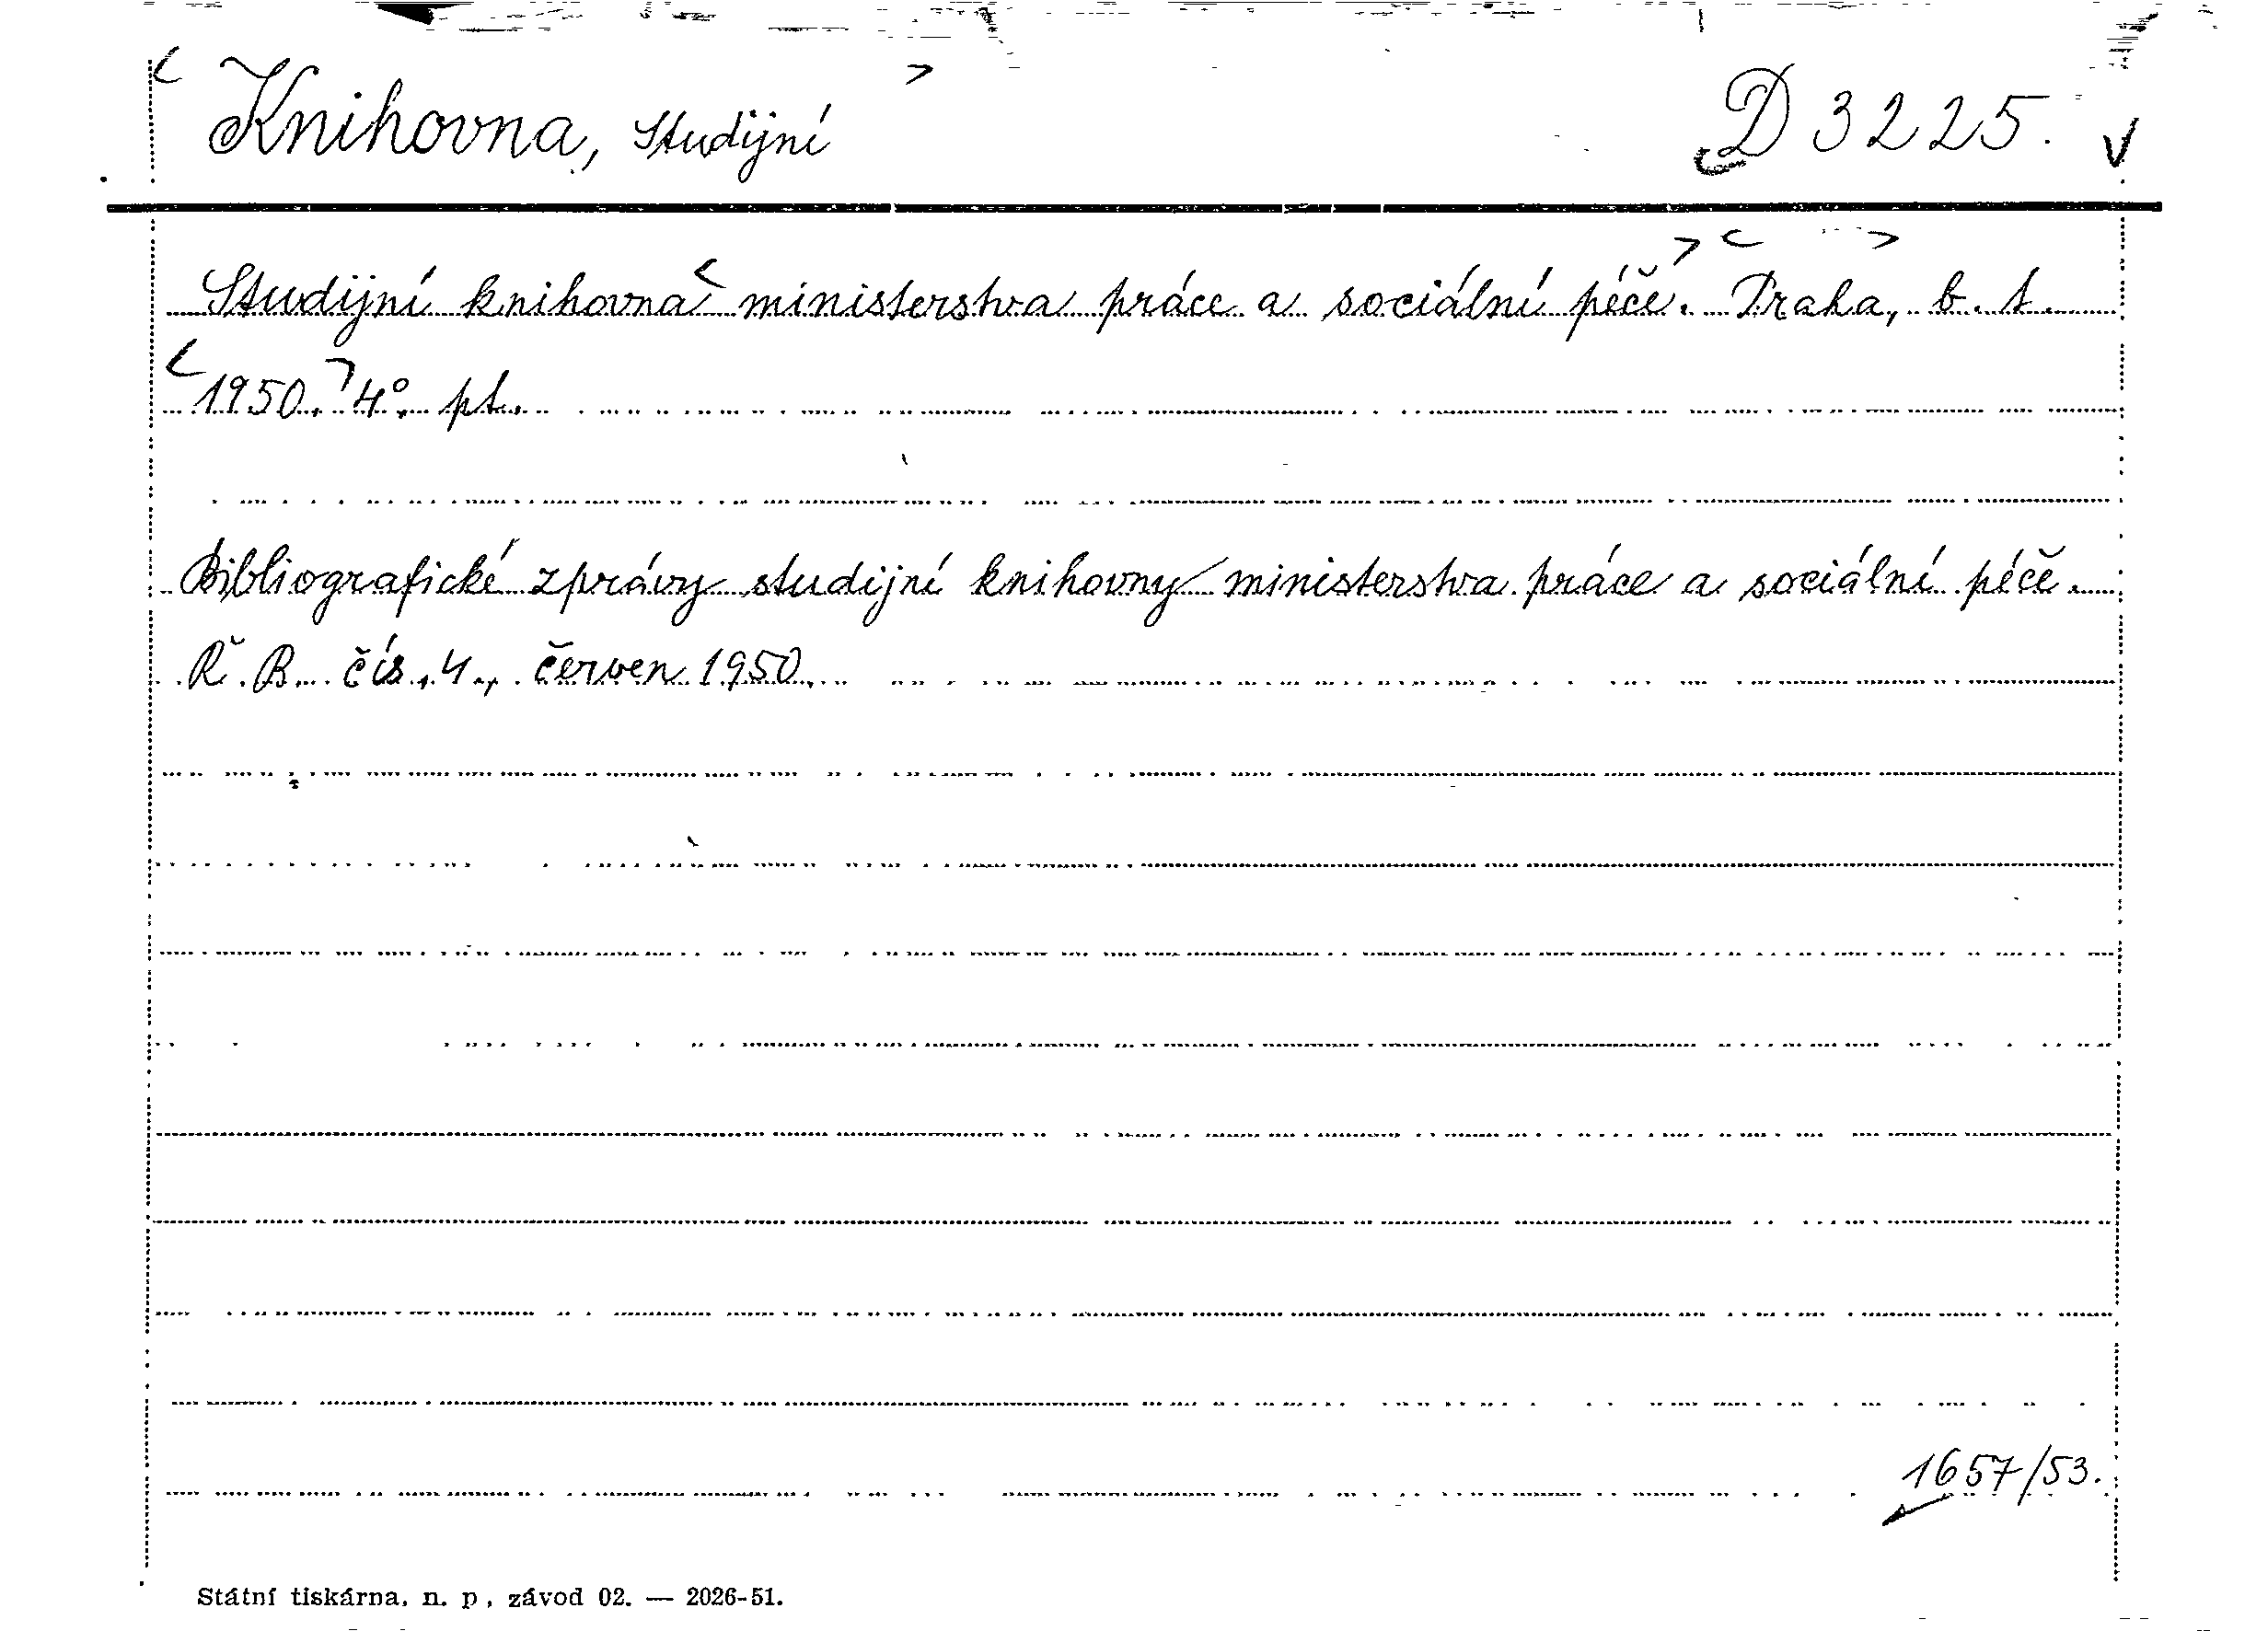 Knihovna, Studijní
D 3225.
Studijní knihovna ministerstva práce a sociální péče. Praha, b. t.
1950. 4°. pt.
Bibliografické zprávy studijní knihovny ministerstva práce a sociální péče.
Ř. B. čís. 4., červen 1950.
1657/53.
Státní tiskárna, n. p., závod 02. — 2026-51.